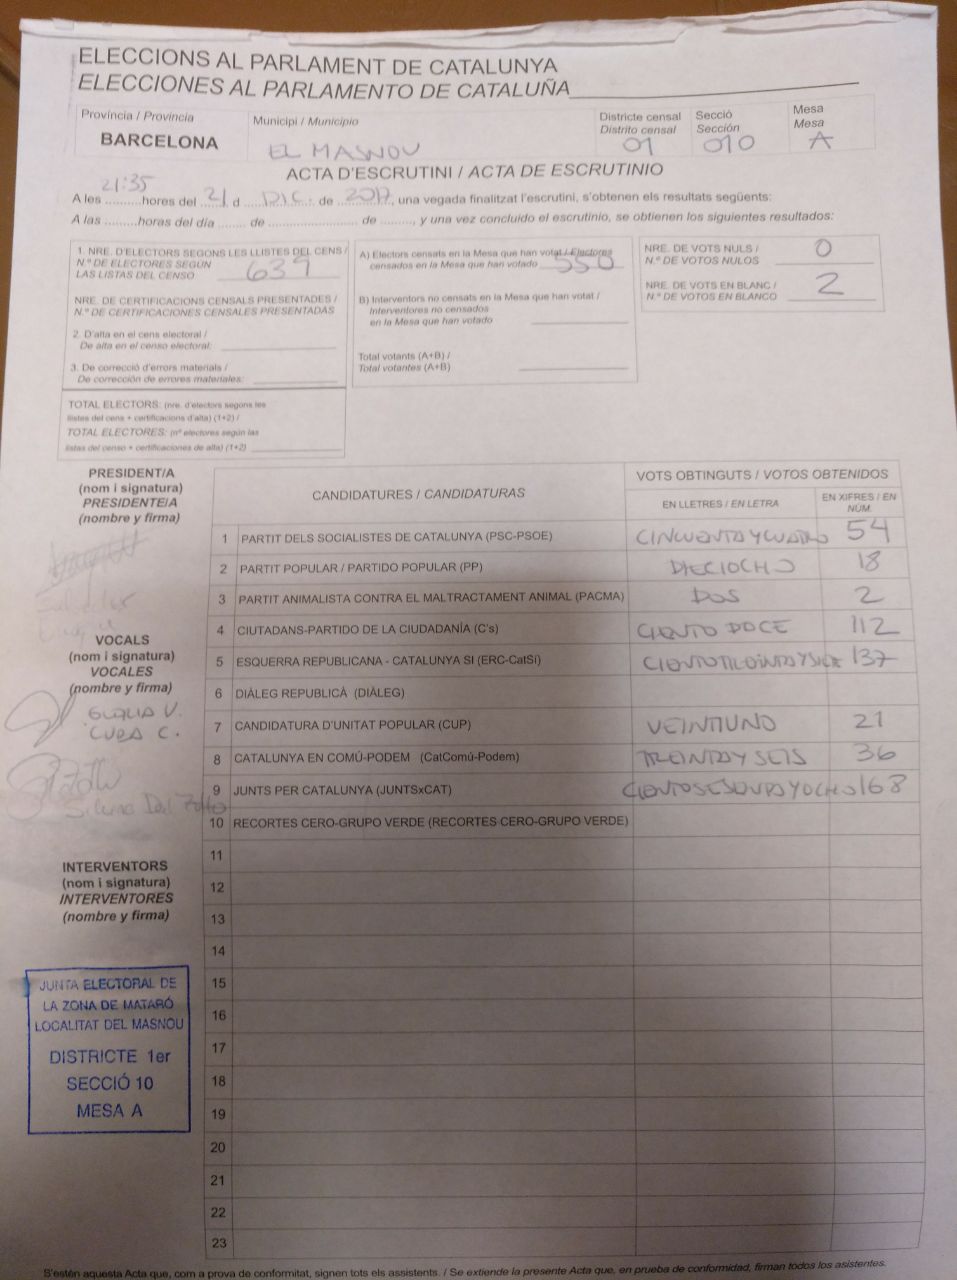 ELECCIONS AL PARLAMENT DE CATALUNYA
ELECCIONES AL PARLAMENTO DE CATALUÑA
Província / Provincia
BARCELONA
Municipi / Municipio
EL MASNOU
Districte censal
Distrito censal
01
Secció
Sección
010
Mesa
Mesa
A
ACTA D'ESCRUTINI / ACTA DE ESCRUTINIO
21:35
A les ..........hores del 21 d DIC. de 2017, una vegada finalitzat l'escrutini, s'obtenen els resultats següents:
A las .........horas del día ....... de ........................ de ........., y una vez concluido el escrutinio, se obtienen los siguientes resultados:
1. NRE. D'ELECTORS SEGONS LES LLISTES DEL CENS /
N.º DE ELECTORES SEGÚN
LAS LISTAS DEL CENSO 639
NRE. DE CERTIFICACIONS CENSALS PRESENTADES /
N.º DE CERTIFICACIONES CENSALES PRESENTADAS
2. D'alta en el cens electoral /
De alta en el censo electoral:
3. De correcció d'errors materials /
De corrección de errores materiales:
TOTAL ELECTORS: (nre. d'electors segons les
llistes del cens + certificacions d'alta) (1+2) /
TOTAL ELECTORES: (nº electores según las
listas del censo + certificaciones de alta) (1+2)
A) Electors censats en la Mesa que han votat / Electores
censados en la Mesa que han votado 550
B) Interventors no censats en la Mesa que han votat /
Interventores no censados
en la Mesa que han votado
Total votants (A+B) /
Total votantes (A+B)
NRE. DE VOTS NULS /
N.º DE VOTOS NULOS 0
NRE. DE VOTS EN BLANC /
N.º DE VOTOS EN BLANCO 2
PRESIDENT/A
(nom i signatura)
PRESIDENTE/A
(nombre y firma)
VOCALS
(nom i signatura)
VOCALES
(nombre y firma)
INTERVENTORS
(nom i signatura)
INTERVENTORES
(nombre y firma)
CANDIDATURES / CANDIDATURAS
VOTS OBTINGUTS / VOTOS OBTENIDOS
EN LLETRES / EN LETRA
EN XIFRES / EN NÚM.
1 PARTIT DELS SOCIALISTES DE CATALUNYA (PSC-PSOE) CINCUENTA Y CUATRO 54
2 PARTIT POPULAR / PARTIDO POPULAR (PP) DIECIOCHO 18
3 PARTIT ANIMALISTA CONTRA EL MALTRACTAMENT ANIMAL (PACMA) DOS 2
4 CIUTADANS-PARTIDO DE LA CIUDADANÍA (C's) CIENTO DOCE 112
5 ESQUERRA REPUBLICANA - CATALUNYA SI (ERC-CatSí) CIENTO TREINTA Y SIETE 137
6 DIÀLEG REPUBLICÀ (DIÀLEG)
7 CANDIDATURA D'UNITAT POPULAR (CUP) VEINTIUNO 21
8 CATALUNYA EN COMÚ-PODEM (CatComú-Podem) TREINTA Y SEIS 36
9 JUNTS PER CATALUNYA (JUNTSxCAT) CIENTO SESENTA Y OCHO 168
10 RECORTES CERO-GRUPO VERDE (RECORTES CERO-GRUPO VERDE)
11
12
13
14
15
16
17
18
19
20
21
22
23
JUNTA ELECTORAL DE
LA ZONA DE MATARÓ
LOCALITAT DEL MASNOU
DISTRICTE 1er
SECCIÓ 10
MESA A
S'estén aquesta Acta que, com a prova de conformitat, signen tots els assistents. / Se extiende la presente Acta que, en prueba de conformidad, firman todos los asistentes.